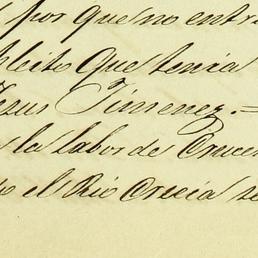 por que no entr
pleito que tenia
Jesus Jimenez.=
la labor de Cruce
el Rio Crecia se